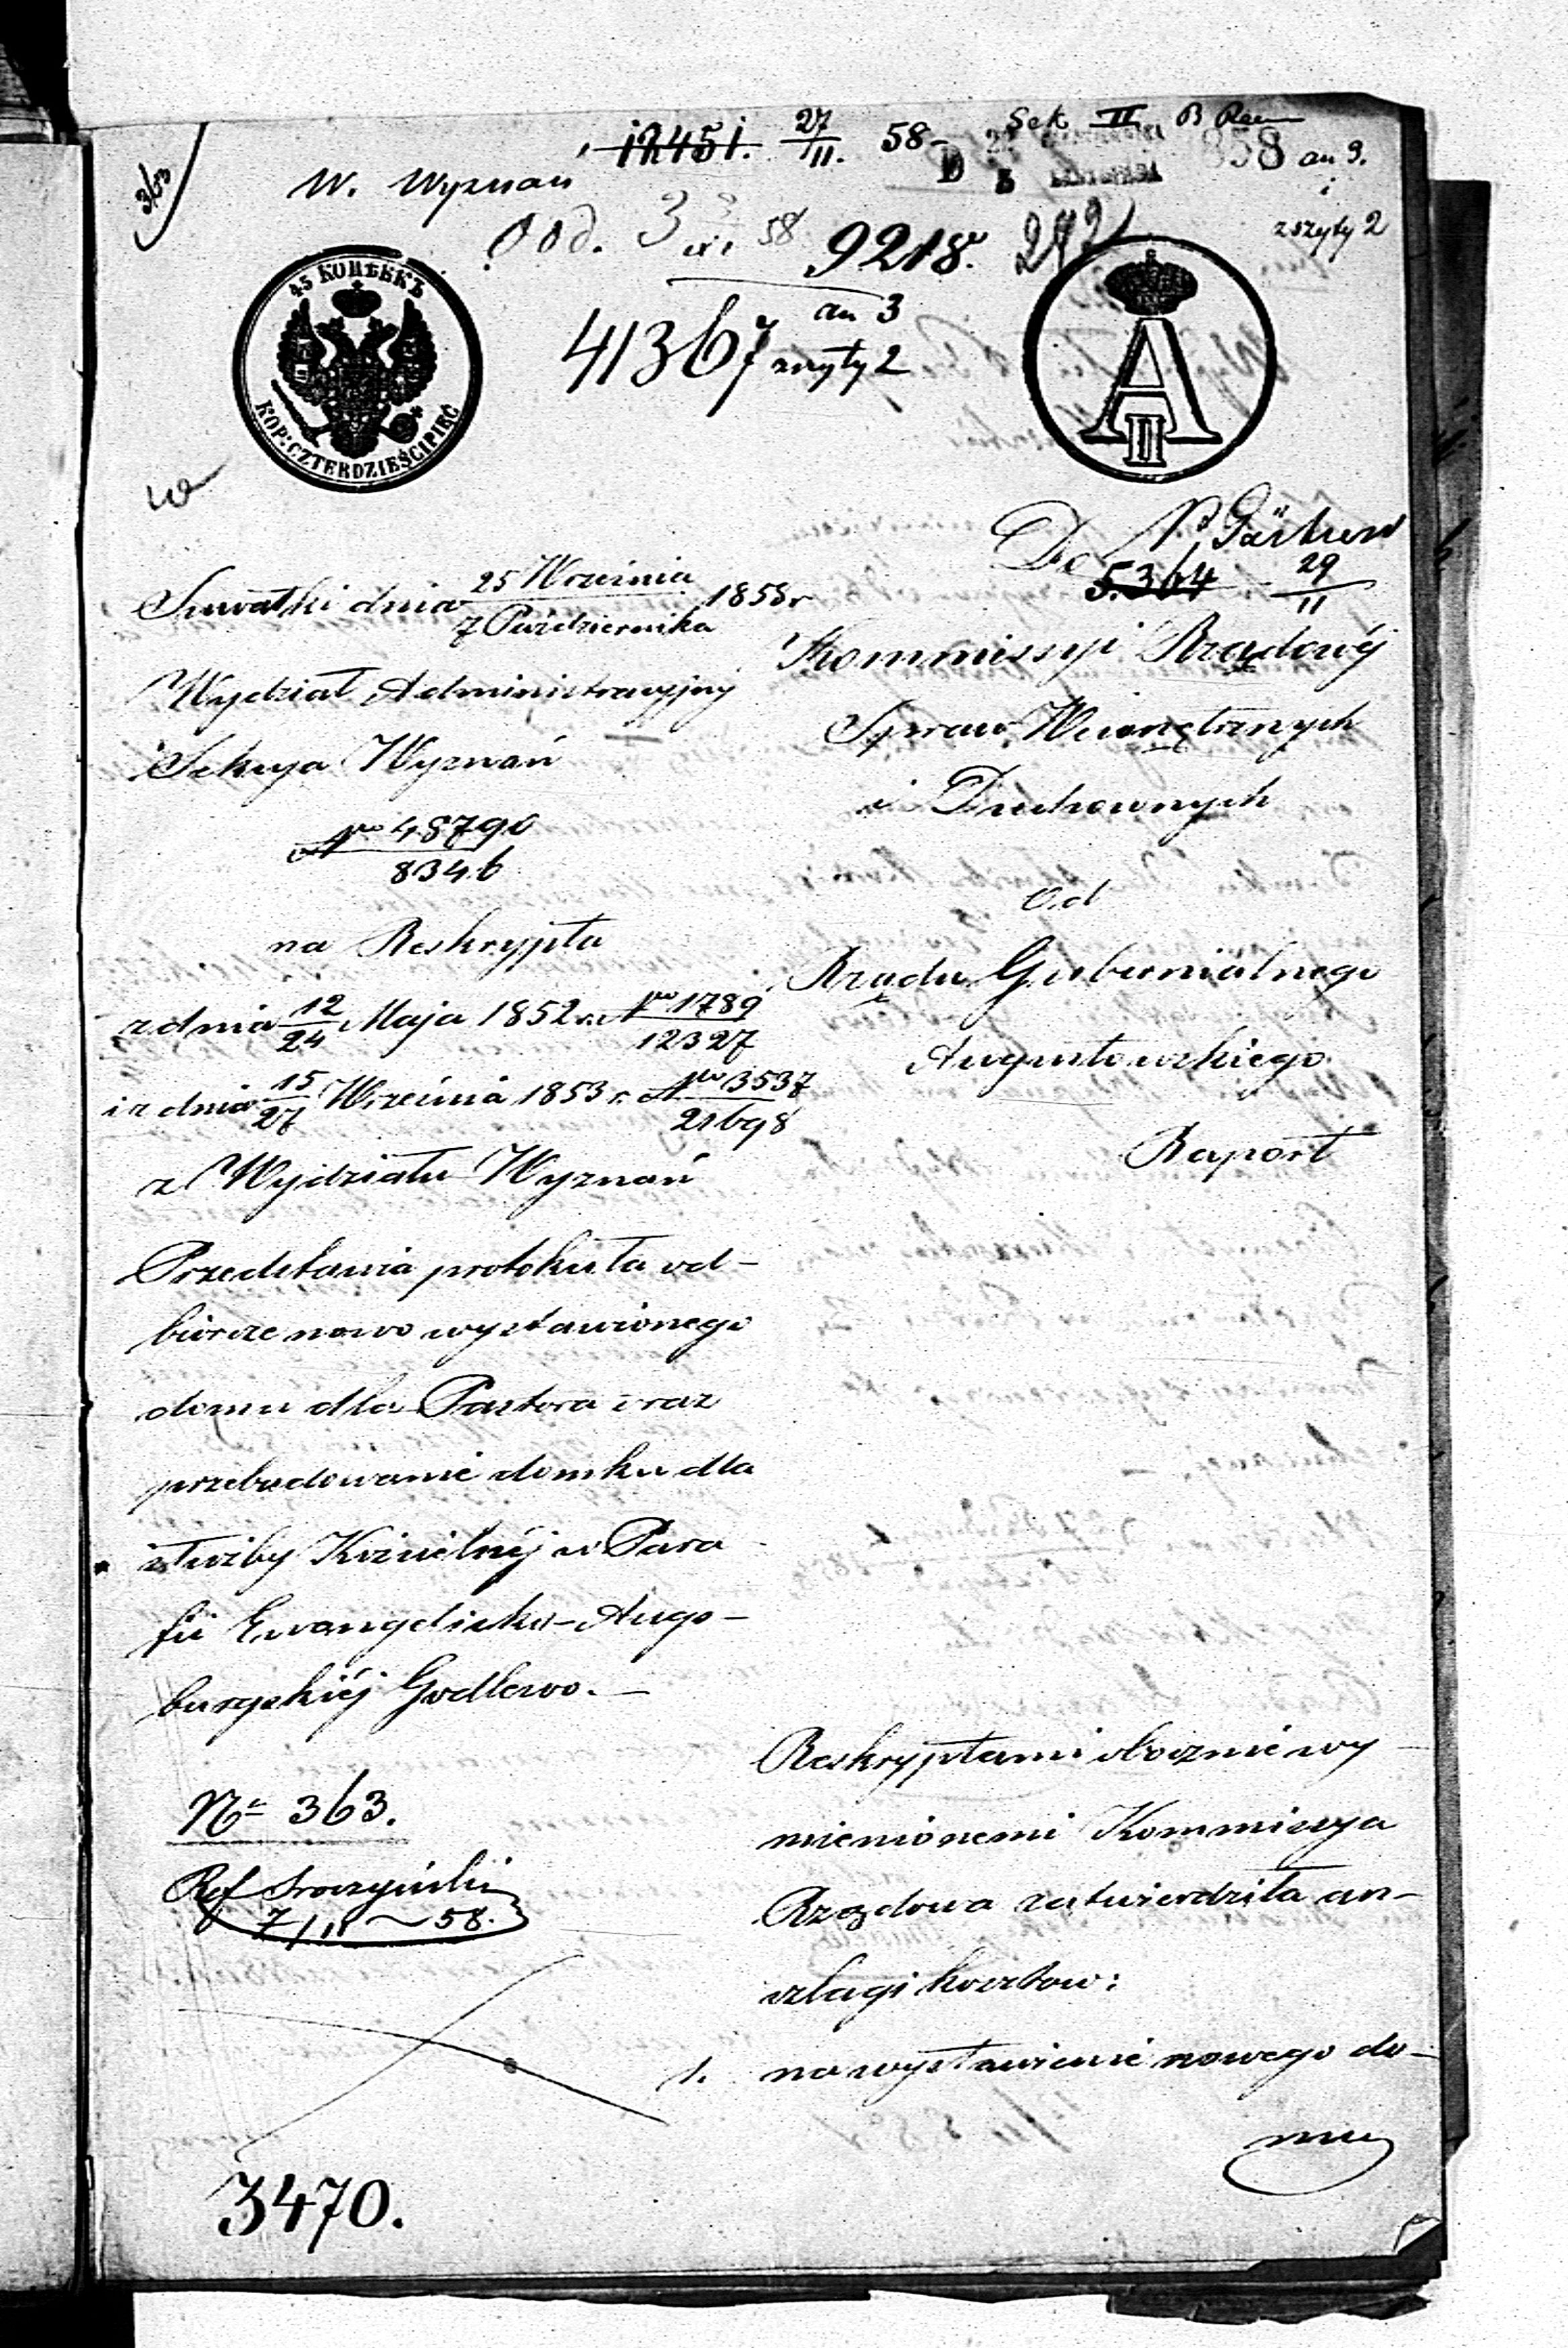 12451. 27/II. 58 -
Sek II B
858 an 9.
i
zszyty 2
363
W. Wyznań
Odd. 3 XI 58
9218.
an 3
41367 zszyty 2
45 КОПѢЕКЪ
KOP: CZTERDZIEŚCI PIĘĆ
A II
Suwałki dnia 25 Września / 7 Października 1858 r
Wydział Administracyjny
Sekcya Wyznań
No 48790 / 8346
na Reskrypta
z dnia 12/24 Maja 1852 r. No 1789 / 12327
i z dnia 15/27 Września 1853 r. No 3537 / 21698
z Wydziału Wyznań
Przedstawia protokuła od-
biorcze nowo wystawionego
domu dla Pastora oraz
przebudowanie domku dla
służby Kościelnéj w Para
fii Ewangelicko-Augs-
burgskiéj Godlewo. —
No 363.
Ref Sroczyński
7/11 ~ 58.
3470.
Do
5.364 29/11
Kommissyi Rządowéj
Spraw Wewnętrznych
i Duchownych
Od
Rządu Gubernialnego
Augustowskiego
Raport
Reskryptami obocznie wy-
mienionemi Kommissya
Rządowa zatwierdziła an-
szlagi kosztow:
1. na wystawienie nowego do-
mu